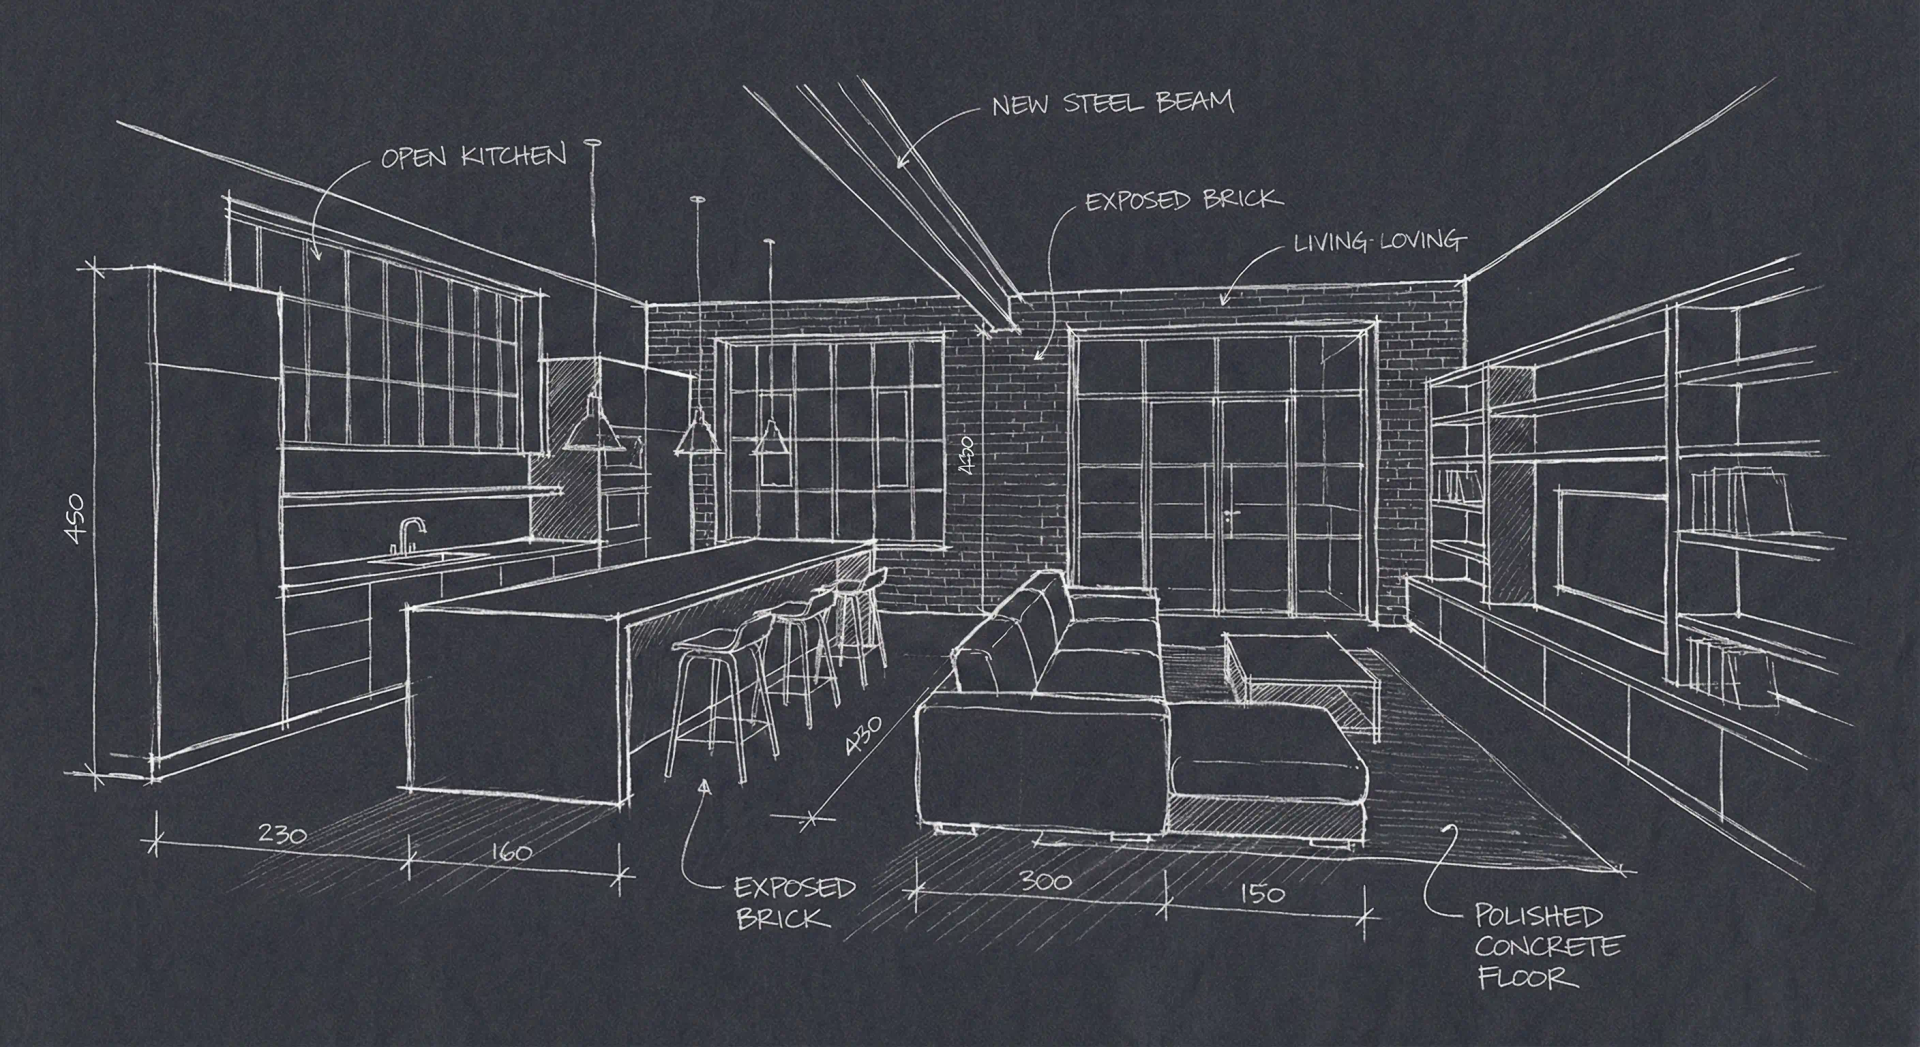 NEW STEEL BEAM
OPEN KITCHEN
EXPOSED BRICK
LIVING-LOVING
450
430
430
230
160
300
150
EXPOSED
BRICK
POLISHED
CONCRETE
FLOOR